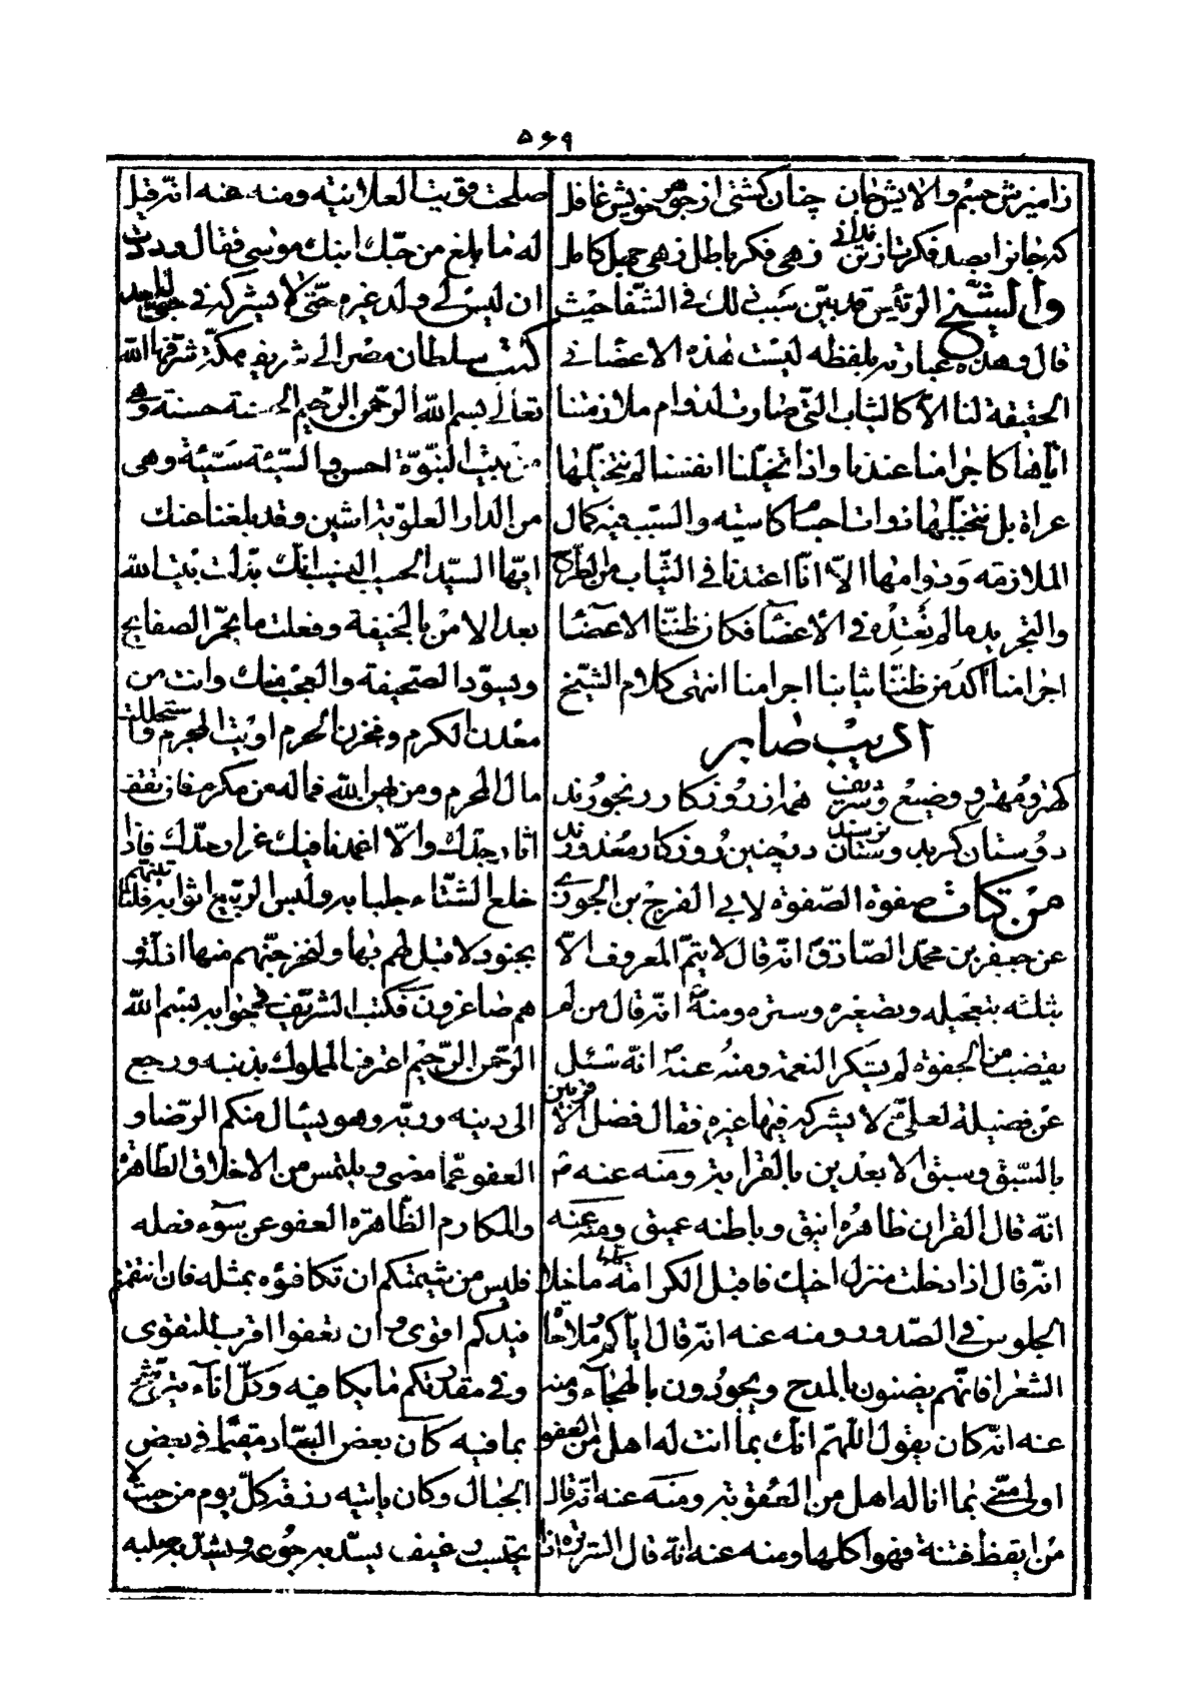 ۵۶۹
زامیزش جسم والایش جان چنان کشتی از جوهر خویش غافل
که جانرا بصد فکرتاز تن ندانی زهی فکر باطل زهی جهل کامل
وللشیخ الرئیس قد بین سبب ذلك فی الشفا حیث
قال وهذه عبارته بلفظه لیست هذه الاعضا فی
الحقیقة لنا الا کالثیاب التی صارت لدوام ملازمتنا
ایاها کاجزامنا عندنا واذا تخیلنا انفسنا لم نتخیلها
عراة بل نتخیلها ذوات اجسام کاسیة والسبب فیه کمال
الملازمة ودوامها الا انا اعتدنا فی الثیاب من الطرح
والتجرید ما لم نعتده فی الأعضا فکان ظننا الاعضا
اجزامنا آکد من ظننا ثیابنا اجزامنا انتهی کلام الشیخ
ادیب صابر
کهتر ومهتر و وضیع وشریف همه از روزکار رنجورند
دوستان کر بدوستان نرسند در چنین روزکار معذورند
من کتاب صفوة الصفوة لابی الفرج بن الجوزی
عن جعفر بن محمد الصادق انه قال لا یتم المعروف الا
بثلثه بتعجیله وتصغیره وستره ومنه انه قال من لم
یغضب من الجفوة لم یشکر النعمة ومنه عنه انه سئل
عن فضیلة لعلی لا یشرکه فیها غیره فقال فضل الاقربین
بالسبق وسبق الابعدین بالقرابة ومنه عنه
انه قال القران ظاهره انیق وباطنه عمیق ومنه عنه
انه قال اذا دخلت منزل اخیك فاقبل الکرامة کلها ما خلا
الجلوس فی الصدر ومنه عنه انه قال ایاکم وملاحاة
الشعرا فانهم یضنون بالمدح ویجودون بالهجاء ومنه
عنه انه کان یقول اللهم انك بما انت له اهل من العفو
اولی منی بما انا له اهل من العقوبة ومنه عنه انه قال
من ایقظ فتنة فهو اکلها ومنه عنه انه قال السریرة اذا
صلحت قویت العلانیة ومنه عنه انه قیل
له ما بلغ من حبك ابنك موسی فقال وددت
ان لیس لی ولد غیره حتی لا یشرکه فی حبی له احد
کتب سلطان مصر الی شریف مکة شرفها الله
تعالی بسم الله الرحمن الرحیم الحسنة حسنة وهی
من بیت النبوة احسن والسیئة سیئة وهی
من الدار العلویة اشین وقد بلغنا عنك
ایها السید الحسیب النسیب انك بدلت بیت الله
بعد الامن بالخیفة وفعلت ما یحمر الصفایح
ویسود الصحیفة والعجب منك وانت من
معدن الکرم ومخزن الحرم اویت المجرم واستحللت
مال المحرم ومن یهن الله فما له من مکرم فان تقف
اثار جدك والا اغمدنا فیك غرار حدك فاذا
خلع الشتاء جلبابه ولبس الربیع اثوابه فلناتینهم
بجنود لا قبل لهم بها ولنخرجنهم منها اذلة و
هم صاغرون فکتب الشریف فی جوابه بسم الله
الرحمن الرحیم اعترف المملوك بذنبه ورجع
الی دینه وربه وهو یسال منکم الرضا و
العفو عما مضی ویلتمس من الاخلاق الطاهرة
والمکارم الظاهرة العفو عن سوء فعله
فلیس من شیمتکم ان تکافؤه بمثله فان انتقمتم
فیدکم اقوی وان تعفوا اقرب للتقوی
وفی مقدرتکم ما یکافیه وکل اناء یترشح
بما فیه کان بعض العباد مقیما فی بعض
الجبال وکان یاتیه رزقه کل یوم من حیث لا
یحتسب رغیف یسد به جوعه ویشد به صلبه